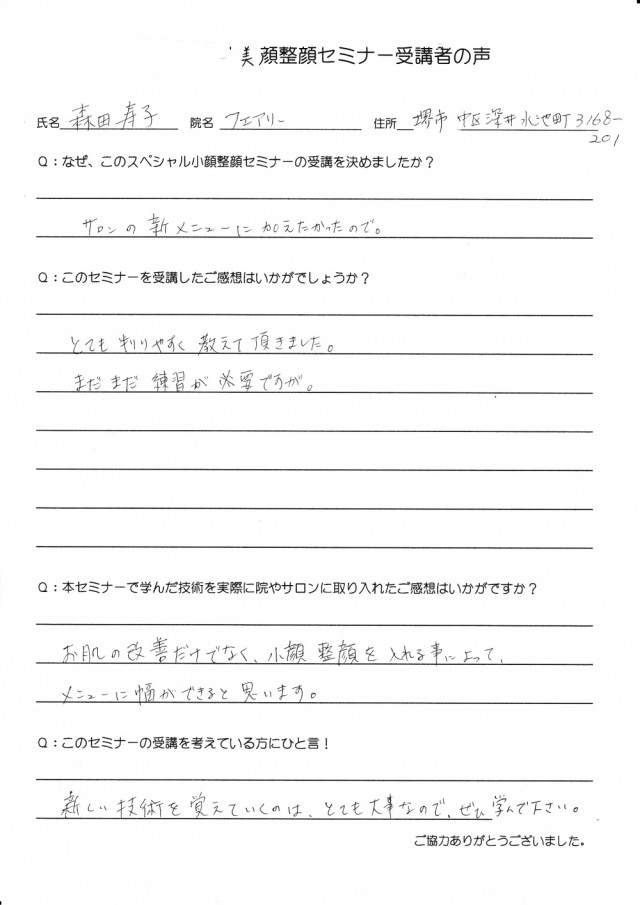 美顔整顔セミナー受講者の声
氏名 森田寿子 院名 フェアリー 住所 堺市 中区深井水池町3168-
201
Q:なぜ、このスペシャル小顔整顔セミナーの受講を決めましたか?
サロンの新メニューに加えたかったので。
Q:このセミナーを受講したご感想はいかがでしょうか?
とても判りやすく教えて頂きました。
まだまだ練習が必要ですが。
Q:本セミナーで学んだ技術を実際に院やサロンに取り入れたご感想はいかがですか?
お肌の改善だけでなく、小顔整顔を入れる事によって、
メニューに幅ができると思います。
Q:このセミナーの受講を考えている方にひと言!
新しい技術を覚えていくのは、とても大事なので、ぜひ学んで下さい。
ご協力ありがとうございました。